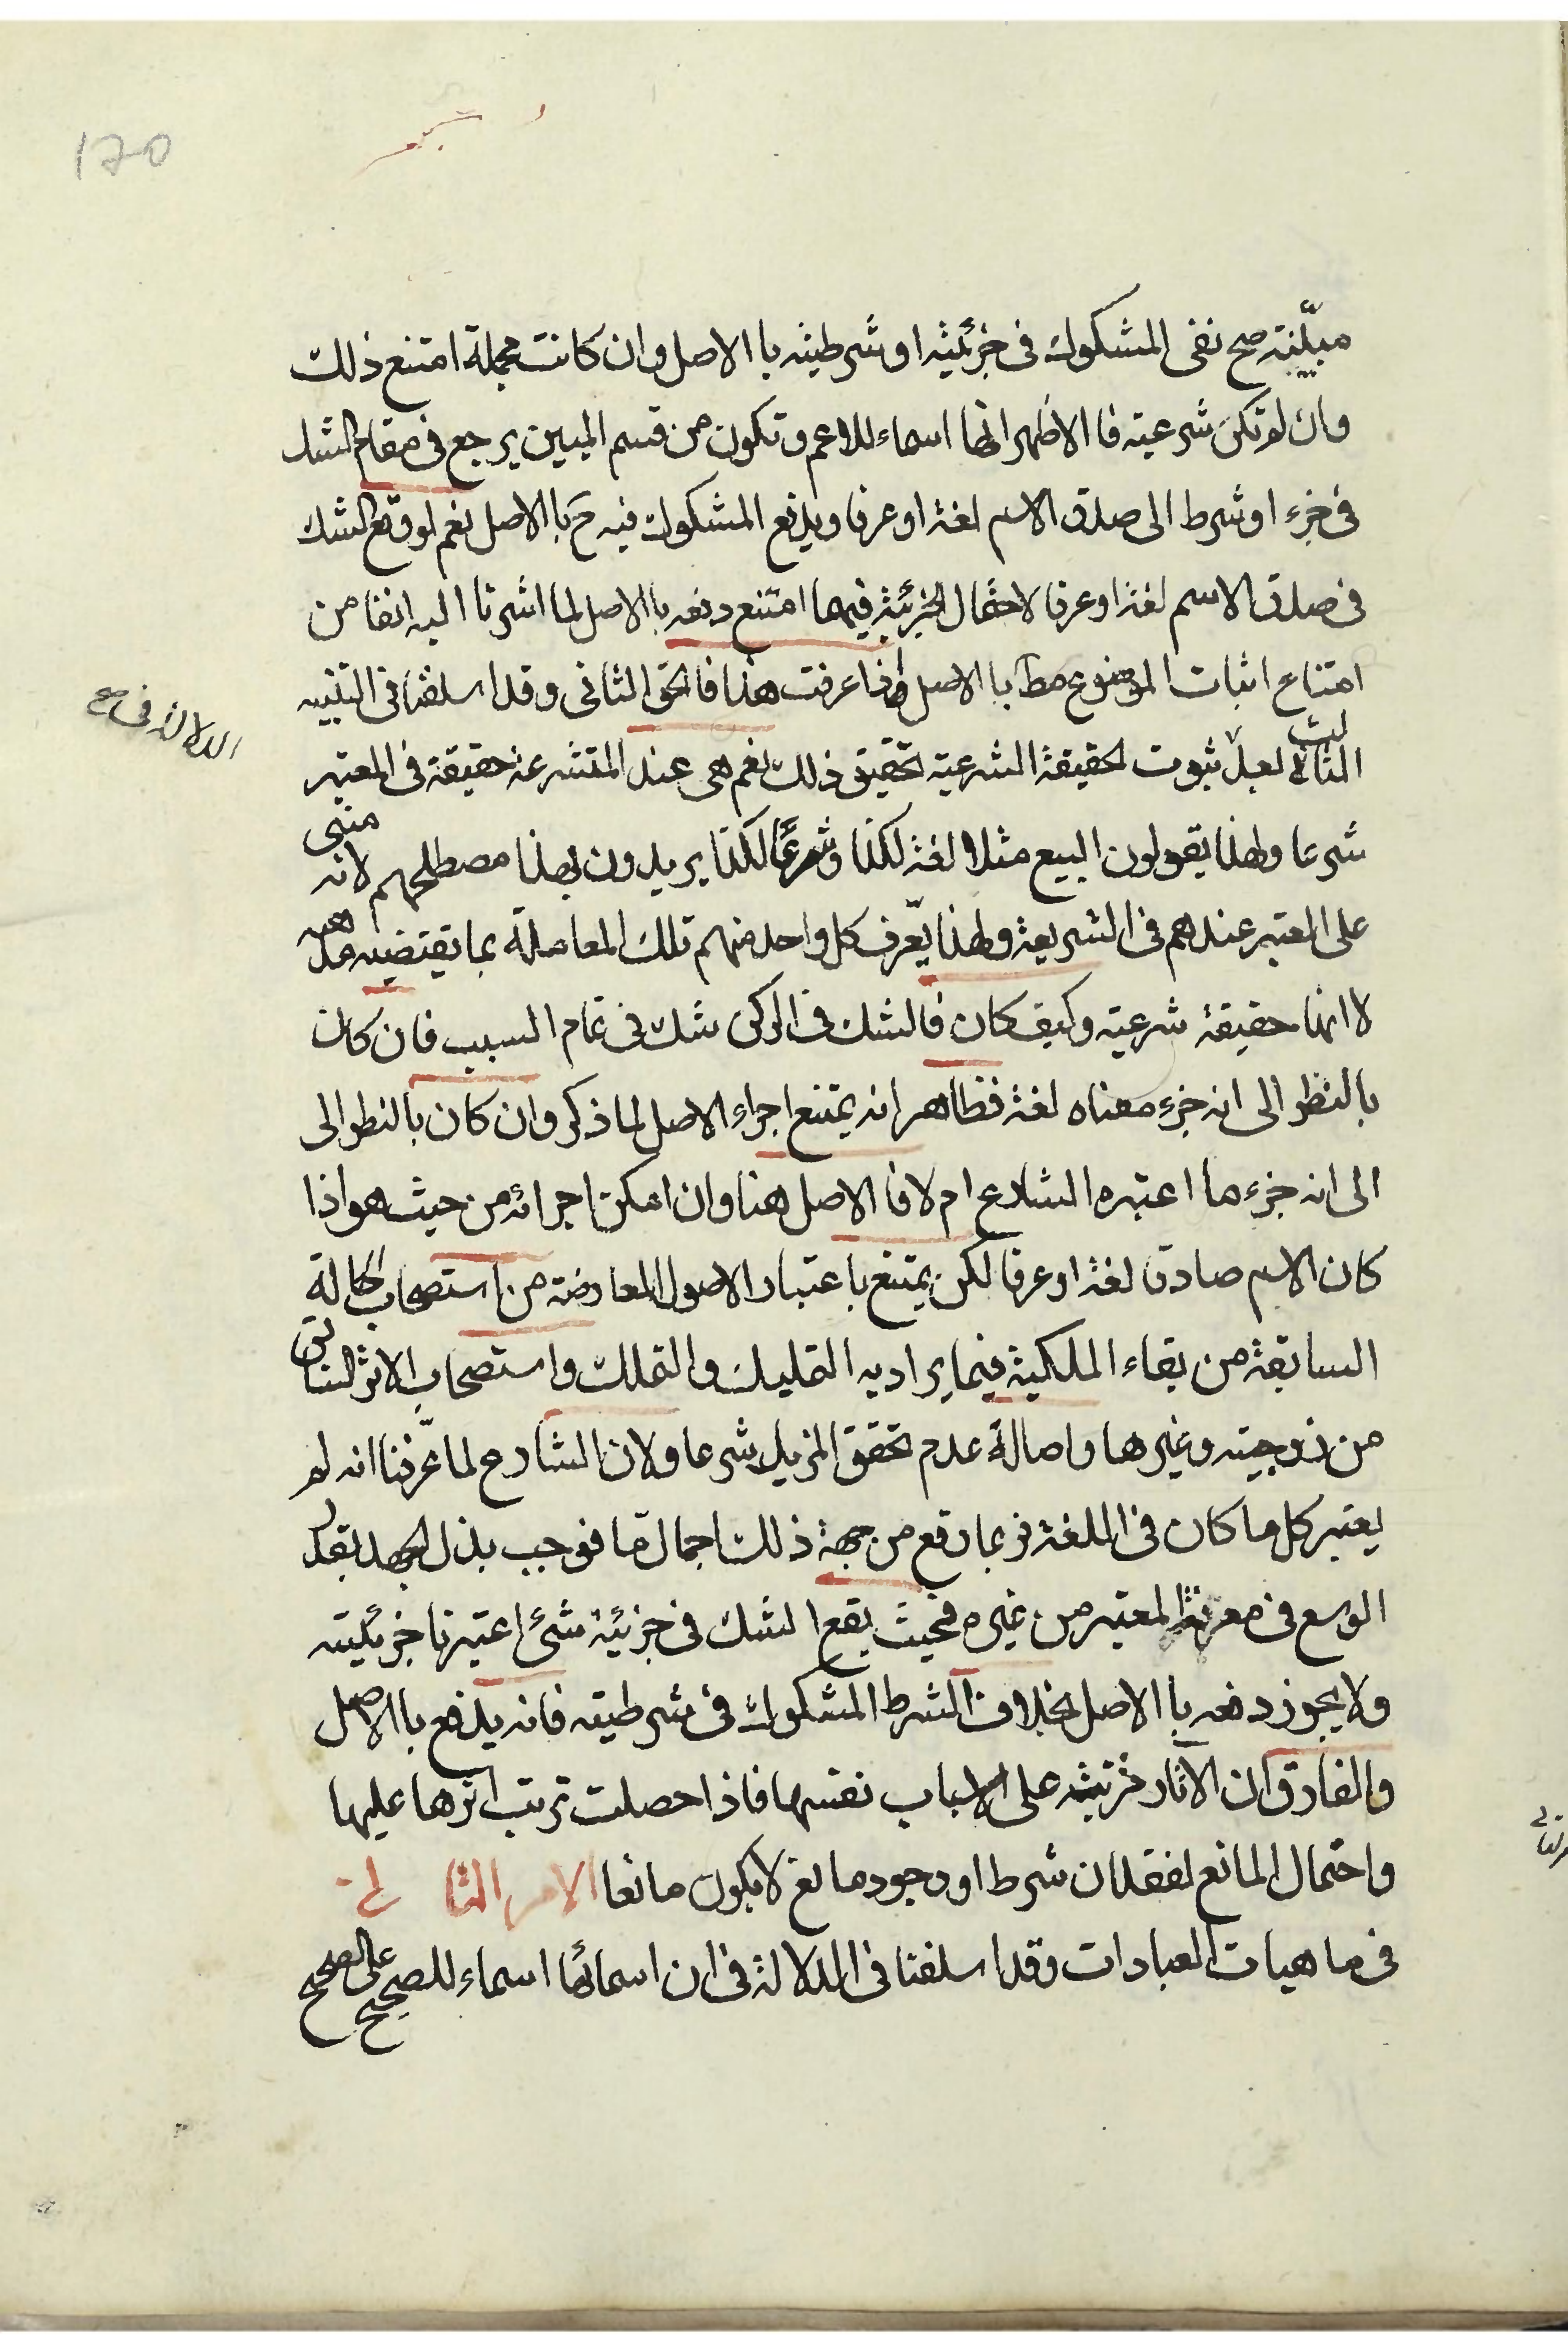 مبيّنة صح نفى المشكوك فى جزئيته او شرطيته با الاصل وان كانت مجملة امتنع ذلك
وان لم تكن شرعية فا الاظهر انها اسماء للاعم وتكون من قسم المبين يرجع فى مقام الشك
فى جزء او شرط الى صدق الاسم لغة او عرفا ويدفع المشكوك فيه ح با الاصل نعم لو وقع الشك
فى صدق الاسم لغة او عرفا لاحتمال الجزئية فيهما امتنع دفعه با الاصل لما اشرنا اليه انفا من
امتناع اثبات الموضوع مط با الاصل واذا عرفت هذا فا الحق الثانى وقد اسلفنا فى التنبيه
الثالث لعدم ثبوت الحقيقة الشرعية تحقيق ذلك نعم هى عند المتشرعة حقيقة فى المعتبر
شرعا ولهذا يقولون البيع مثلا لغة لكذا وشرعا لكذا يريدون بهذا مصطلحهم لانه مبنى
على المعتبر عندهم فى الشريعة ولهذا يعّرف كل واحد منهم تلك المعاملة بما يقتضيه مذهبه
لا انها حقيقة شرعية وكيف كان فا الشك فى الركن شك فى تمام السبب فان كان
بالنظر الى انه جزء معناه لغة فظاهر انه يمتنع اجراء الاصل لما ذكر وان كان بالنظر الى
الى انه جزء مما اعتبره الشارع ام لا فا الاصل هنا وان امكن اجرائه من حيث هو اذا
كان الاسم صادقا لغة او عرفا لكن يمتنع باعتبار الاصول المعارضة من استصحاب الحالة
السابقة من بقاء الملكية فيما يراد به التمليك والتملك واستصحاب الاثر السابق
من زوجية وغيرها واصالة عدم تحقق المزيل شرعا ولان الشارع لما عّرفنا انه لم
يعتبر كل ما كان فى اللغة فربما وقع من جهة ذلك اجمال مّا فوجب بذل الجهد بقدر
الوسع فى معرفة المعتبر من غيره فحيث يقع الشك فى جزئية شىء اعتبرنا جزئيته
ولا يجوز دفعه با الاصل بخلاف الشرط المشكوك فى شرطيته فانه يدفع با الاصل
والفارق ان الاثار مترتبة على الاسباب نفسها فاذا حصلت ترتب اثرها عليها
واحتمال المانع لفقدان شرط او وجود مانع لا يكون مانعا الامر الثا نى
فى ماهيات العبادات وقد اسلفنا فى الدلالة فى ان اسمائها اسماء للصحيح على الصحيح